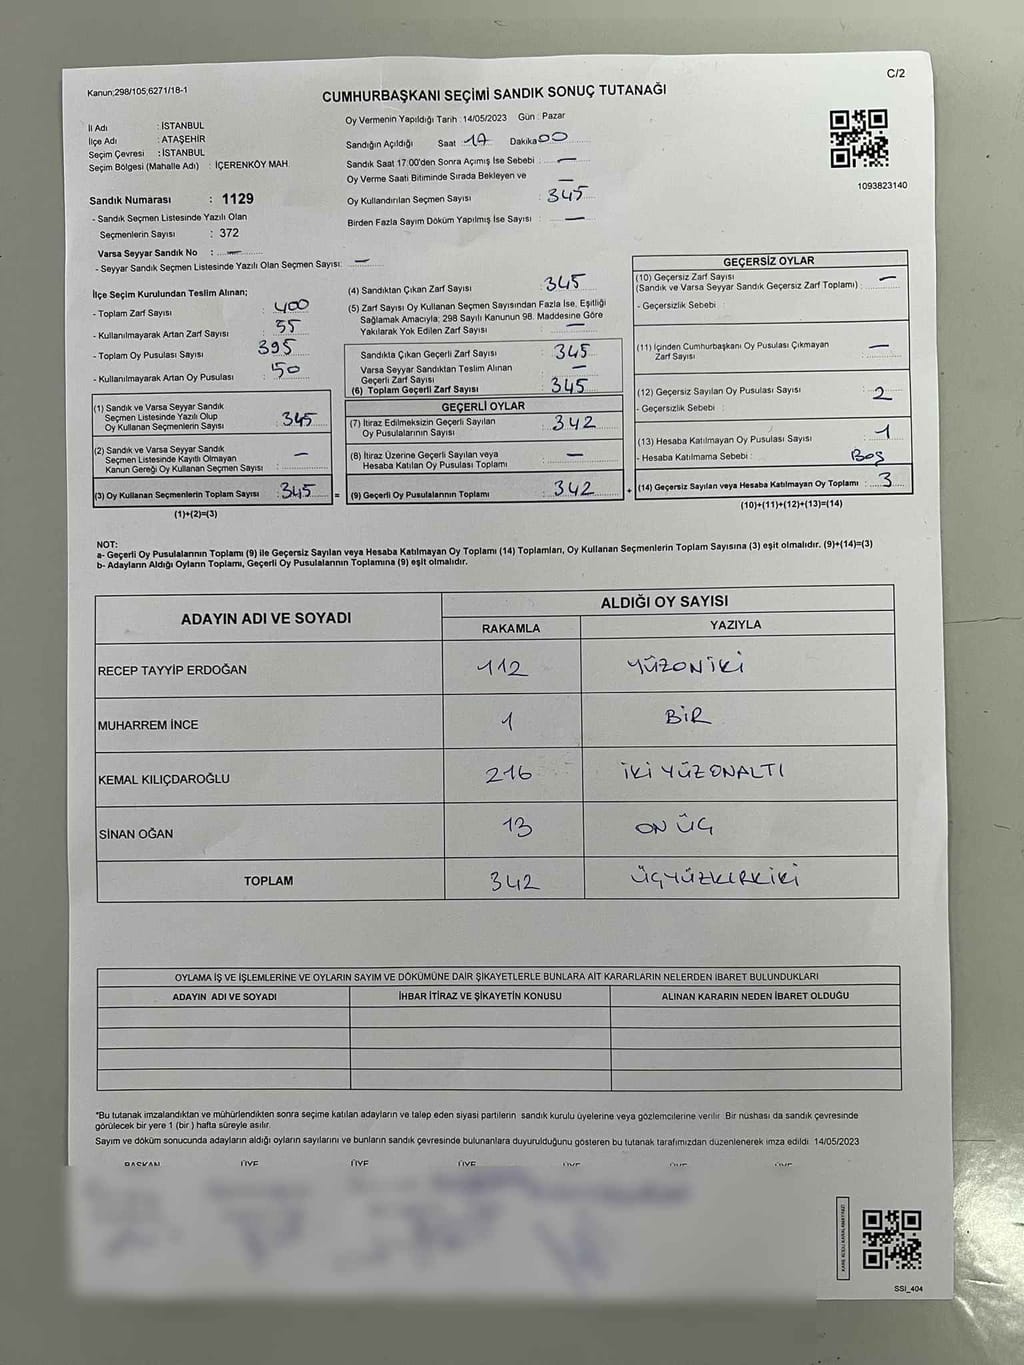 C/2
Kanun;298/105;6271/18-1
CUMHURBAŞKANI SEÇİMİ SANDIK SONUÇ TUTANAĞI
İl Adı : İSTANBUL
İlçe Adı : ATAŞEHİR
Seçim Çevresi : İSTANBUL
Seçim Bölgesi (Mahalle Adı) : İÇERENKÖY MAH.
Oy Vermenin Yapıldığı Tarih : 14/05/2023 Gün : Pazar
Sandığın Açıldığı Saat 17 Dakika 00
Sandık Saat 17:00'den Sonra Açımış İse Sebebi : —
Oy Verme Saati Bitiminde Sırada Bekleyen ve —
Oy Kullandırılan Seçmen Sayısı : 345
Birden Fazla Sayım Döküm Yapılmış İse Sayısı : —
1093823140
Sandık Numarası : 1129
- Sandık Seçmen Listesinde Yazılı Olan
Seçmenlerin Sayısı : 372
Varsa Seyyar Sandık No : —
- Seyyar Sandık Seçmen Listesinde Yazılı Olan Seçmen Sayısı: —
İlçe Seçim Kurulundan Teslim Alınan;
- Toplam Zarf Sayısı : 400
- Kullanılmayarak Artan Zarf Sayısı : 55
- Toplam Oy Pusulası Sayısı : 395
- Kullanılmayarak Artan Oy Pusulası : 50
(1) Sandık ve Varsa Seyyar Sandık
Seçmen Listesinde Yazılı Olup
Oy Kullanan Seçmenlerin Sayısı : 345
(2) Sandık ve Varsa Seyyar Sandık
Seçmen Listesinde Kayıtlı Olmayan
Kanun Gereği Oy Kullanan Seçmen Sayısı : —
(3) Oy Kullanan Seçmenlerin Toplam Sayısı : 345 =
(1)+(2)=(3)
(4) Sandıktan Çıkan Zarf Sayısı : 345
(5) Zarf Sayısı Oy Kullanan Seçmen Sayısından Fazla İse, Eşitliği
Sağlamak Amacıyla; 298 Sayılı Kanunun 98. Maddesine Göre
Yakılarak Yok Edilen Zarf Sayısı : —
Sandıkta Çıkan Geçerli Zarf Sayısı : 345
Varsa Seyyar Sandıktan Teslim Alınan
Geçerli Zarf Sayısı : —
(6) Toplam Geçerli Zarf Sayısı : 345
GEÇERLİ OYLAR
(7) İtiraz Edilmeksizin Geçerli Sayılan
Oy Pusulalarının Sayısı : 342
(8) İtiraz Üzerine Geçerli Sayılan veya
Hesaba Katılan Oy Pusulası Toplamı : —
(9) Geçerli Oy Pusulalarının Toplamı : 342 +
GEÇERSİZ OYLAR
(10) Geçersiz Zarf Sayısı
(Sandık ve Varsa Seyyar Sandık Geçersiz Zarf Toplamı) : —
- Geçersizlik Sebebi :
(11) İçinden Cumhurbaşkanı Oy Pusulası Çıkmayan
Zarf Sayısı : —
(12) Geçersiz Sayılan Oy Pusulası Sayısı : 2
- Geçersizlik Sebebi :
(13) Hesaba Katılmayan Oy Pusulası Sayısı : 1
- Hesaba Katılmama Sebebi : Boş
(14) Geçersiz Sayılan veya Hesaba Katılmayan Oy Toplamı : 3
(10)+(11)+(12)+(13)=(14)
NOT:
a- Geçerli Oy Pusulalarının Toplamı (9) ile Geçersiz Sayılan veya Hesaba Katılmayan Oy Toplamı (14) Toplamları, Oy Kullanan Seçmenlerin Toplam Sayısına (3) eşit olmalıdır. (9)+(14)=(3)
b- Adayların Aldığı Oyların Toplamı, Geçerli Oy Pusulalarının Toplamına (9) eşit olmalıdır.
ADAYIN ADI VE SOYADI
ALDIĞI OY SAYISI
RAKAMLA YAZIYLA
RECEP TAYYİP ERDOĞAN 112 YÜZONİKİ
MUHARREM İNCE 1 BİR
KEMAL KILIÇDAROĞLU 216 İKİ YÜZ ONALTI
SİNAN OĞAN 13 ON ÜÇ
TOPLAM 342 ÜÇYÜZKIRKİKİ
OYLAMA İŞ VE İŞLEMLERİNE VE OYLARIN SAYIM VE DÖKÜMÜNE DAİR ŞİKAYETLERLE BUNLARA AİT KARARLARIN NELERDEN İBARET BULUNDUKLARI
ADAYIN ADI VE SOYADI İHBAR İTİRAZ VE ŞİKAYETİN KONUSU ALINAN KARARIN NEDEN İBARET OLDUĞU
*Bu tutanak imzalandıktan ve mühürlendikten sonra seçime katılan adayların ve talep eden siyasi partilerin sandık kurulu üyelerine veya gözlemcilerine verilir. Bir nüshası da sandık çevresinde
görülecek bir yere 1 (bir ) hafta süreyle asılır.
Sayım ve döküm sonucunda adayların aldığı oyların sayılarını ve bunların sandık çevresinde bulunanlara duyurulduğunu gösteren bu tutanak tarafımızdan düzenlenerek imza edildi. 14/05/2023
BAŞKAN ÜYE ÜYE ÜYE ÜYE ÜYE ÜYE
SSI_404